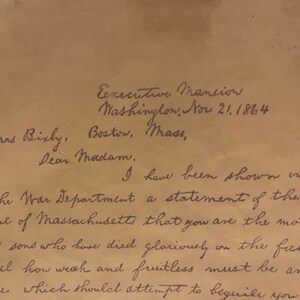 Executive Mansion
Washington, Nov 21, 1864
Bixby, Boston, Mass,
Dear Madam.
I have been shown
War Department a statement of the
of Massachusetts that you are the
sons who have died gloriously on the
how weak and fruitless must be
which should attempt to beguile you